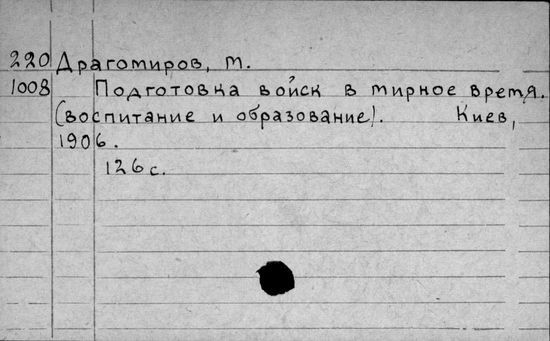 220 Драгомиров, М.
1008 Подготовка войск в мирное время.
(воспитание и образование). Киев,
1906.
126 с.